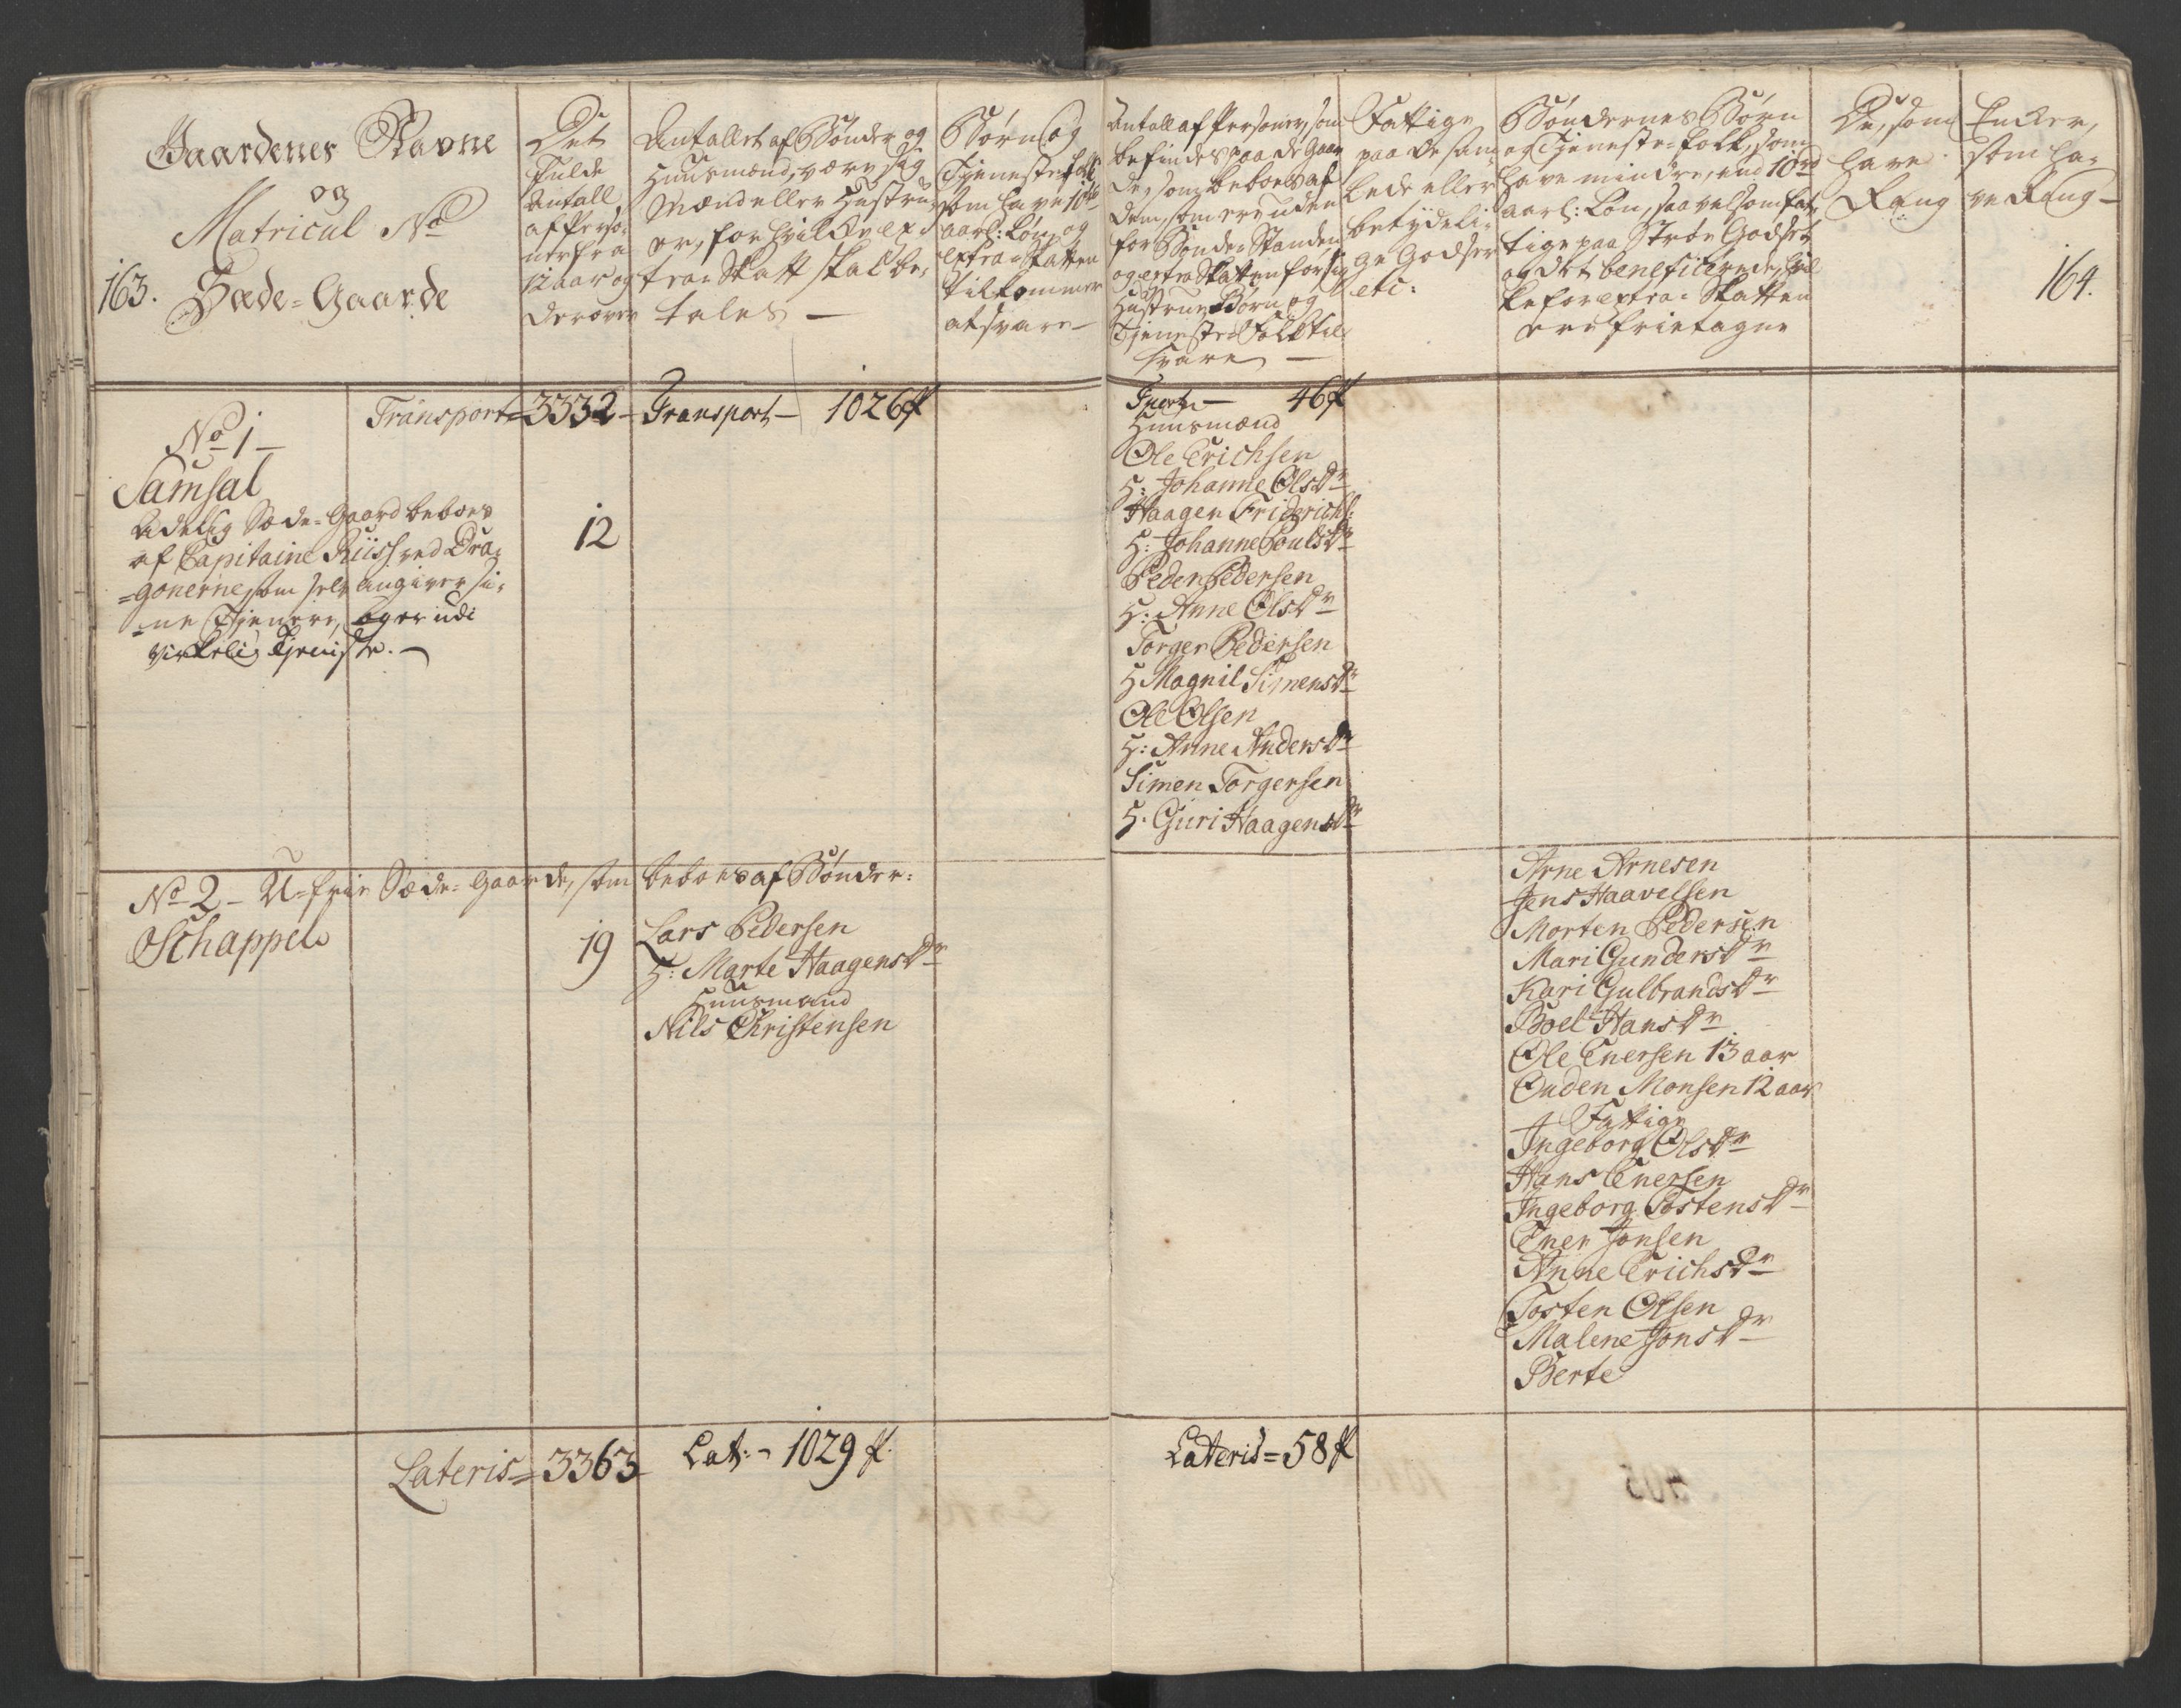 163.
Gaardenes Navne
og
Matricul No
Sæde-Gaarde
Det
Fulde
Antall
af Perso-
ner fra
12 aar og
derover
Antallet af Bønder og
Huusmænd, være sig
Mænd eller Hustru-
er, for hvilke ex-
tra Skatt skal be-
tales —
Børn og
Tjenestefolk
som have 10rd
aarl: Løn, og
extra Skatten
tilkommer
at svare —
Antall af Personer, som
befindes paa de Gaar-
de, som beboes af
dem, som ere uden
for Bønde Standen
og extra Skatten for sig
Hustrue, Børn og
Tjeneste Folk til-
svare —
Fattige
paa de sam-
lede eller
betydeli-
ge Godser
etc:
Bøndernes Børn
og Tjeneste-folk, som
have mindre, end 10rd
aarl: Løn, saavelsom fat-
tige paa Strøe Godset
og det beneficerede, hvil-
ke for extra Skatten
ere frietagne
De, som
have
Rang
Encker,
som ha-
ve Rang —
164.
Transport = 3332 — Transport — 1026 ff
No 1 —
Samsal
Adelig Sæde-Gaard beboes
af Capitaine Riis ved Dra-
=gonerne, som selv angiver si-
=ne Tjenere, og er udi
virkelig Tjeniste. —
12
46 ff
Huusmænd
Ole Erichsen
H: Johanne Olsdr
Haagen Friderichs:
H: Johanne Poulsdr
Peder Pedersen
H: Anne Olsdr
Torger Pedersen
H Magnil Simensdr
Ole Olsen
H: Anne Andersdr
Simen Torgersen
H. Guri Haagensdr
No 2 — U-frie Sæde-Gaarde, som beboes af Bønder:
Schappel
19
Lars Pedersen
H: Marte Haagensdr
Huusmand
Nils Christensen
Arne Arnesen
Jens Haavelsen
Morten Pedersen
Mari Gundersdr
Kari Gulbrandsdr
Boel Hansdr
Ole Enersen 13 aar
Ouden Monsen 12 aar
Fattige
Ingeborg Olsdr
Hans Enersen
Ingeborg Tostensdr
Ener Jonsen
Anne Erichsdr
Tosten Olsen
Malene Jonsdr
Berte
Lateris = 3363
Lat: — 1029 ff.
Lateris = 58 ff